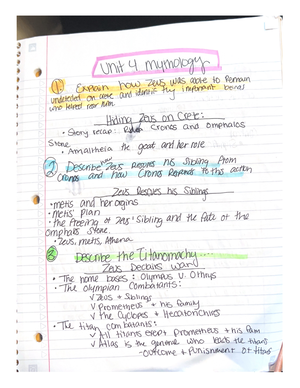 Unit 4 mythology
1. Explain how Zeus was able to remain
undetected on crete and identify the important beings
who helped him.
Hiding Zeus on Crete:
• Story recap: Cronos and Omphalos
Stone.
• Amaltheia the goat and her role
2 Describe how Zeus rescues his sibling from
Cronos and how Cronos responds to this action
Zeus Rescues his Siblings
• metis and her origins
• Metis plan
• the freeing of Zeus' Sibling and the fate of the
omphalos stone.
• Zeus, metis, Athena
3 Describe the Titanomachy
Zeus Declares War
• The home bases: Olympus v. Othrys
• The Olympian Combatants:
✓ Zeus + Siblings
✓ Prometheus + his family
✓ the Cyclopes + Hecatonchires
• The titan combatants:
✓ All titans except Prometheus + his fam
✓ Atlas is the general who leads the titans
-outcome & Punishment of titans